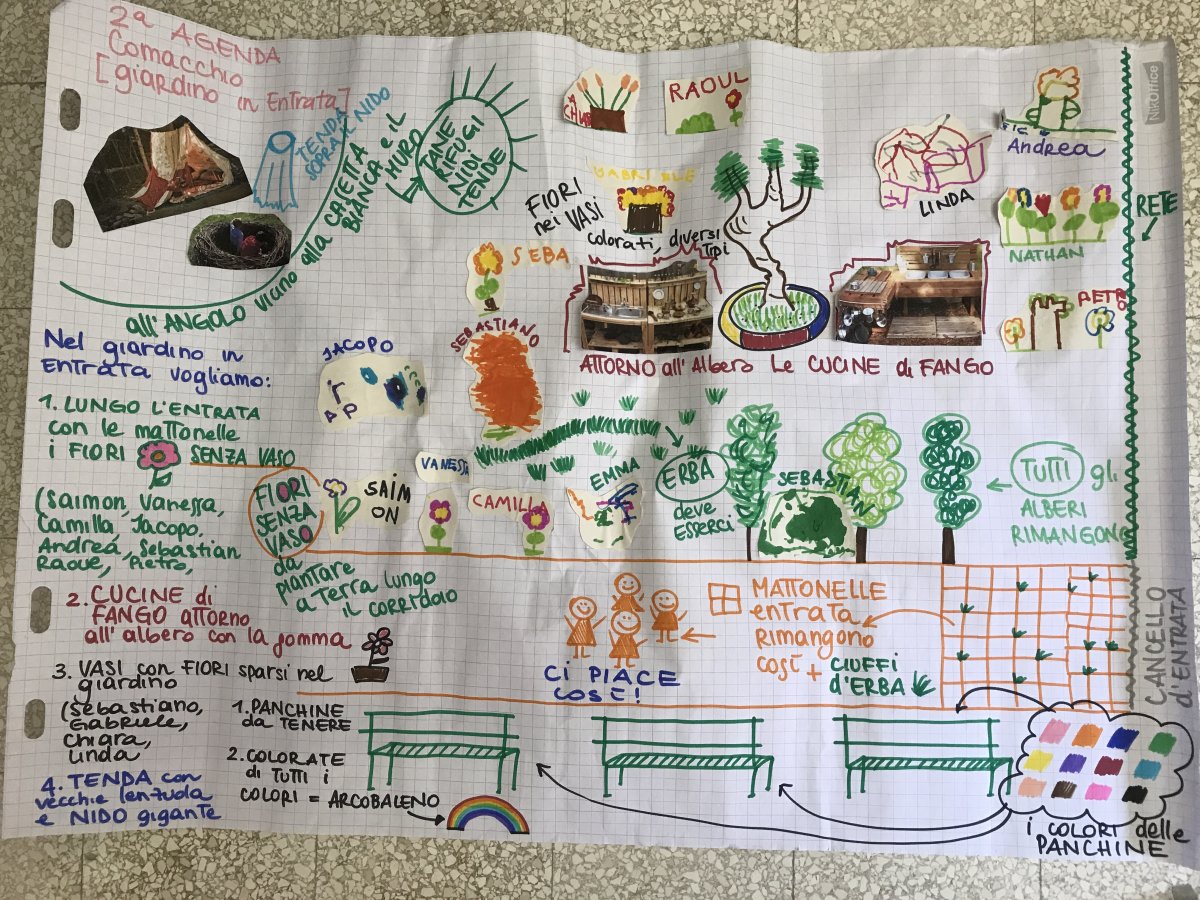 2ª AGENDA
Comacchio
[giardino in Entrata]
TENDA
SOPRA IL NIDO
all'ANGOLO vicino alla CASETTA
BIANCA e il
MURO
TANE
RIFUGI
NIDI
TENDE
RAOUL
GABRIELE
FIORI
nei VASI
colorati, diversi
Tipi
SEBA
LINDA
Andrea
NATHAN
PIETRO
RETE
NikOffice
ATTORNO all'Albero Le CUCINE di FANGO
Nel giardino in
Entrata vogliamo:
1. LUNGO L'ENTRATA
con le mattonelle
i FIORI SENZA VASO
(Saimon, Vanessa,
Camilla Jacopo,
Andrea, Sebastian
Raoue, Pietro,
2. CUCINE di
FANGO ATTORNO
all'albero con la gomma
3. VASI con FIORI sparsi nel
giardino
(Sebastiano,
Gabriele,
Chiara,
Linda
4. TENDA con
vecchie lenzuola
e NIDO gigante
JACOPO
SEBASTIANO
VANESSA
SAIM
ON
CAMILLA
EMMA
SEBASTIAN
FIORI
SENZA
VASO
da
piantare
a Terra lungo
il corridoio
ERBA
deve
esserci
TUTTI gli
ALBERI
RIMANGONO
CI PIACE
COSÌ!
MATTONELLE
entrata
Rimangono
così + CIUFFI
d'ERBA
CANCELLO
d'ENTRATA
1. PANCHINE
da TENERE
2. COLORATE
di TUTTI i
COLORI = ARCOBALENO
i COLORI delle
PANCHINE